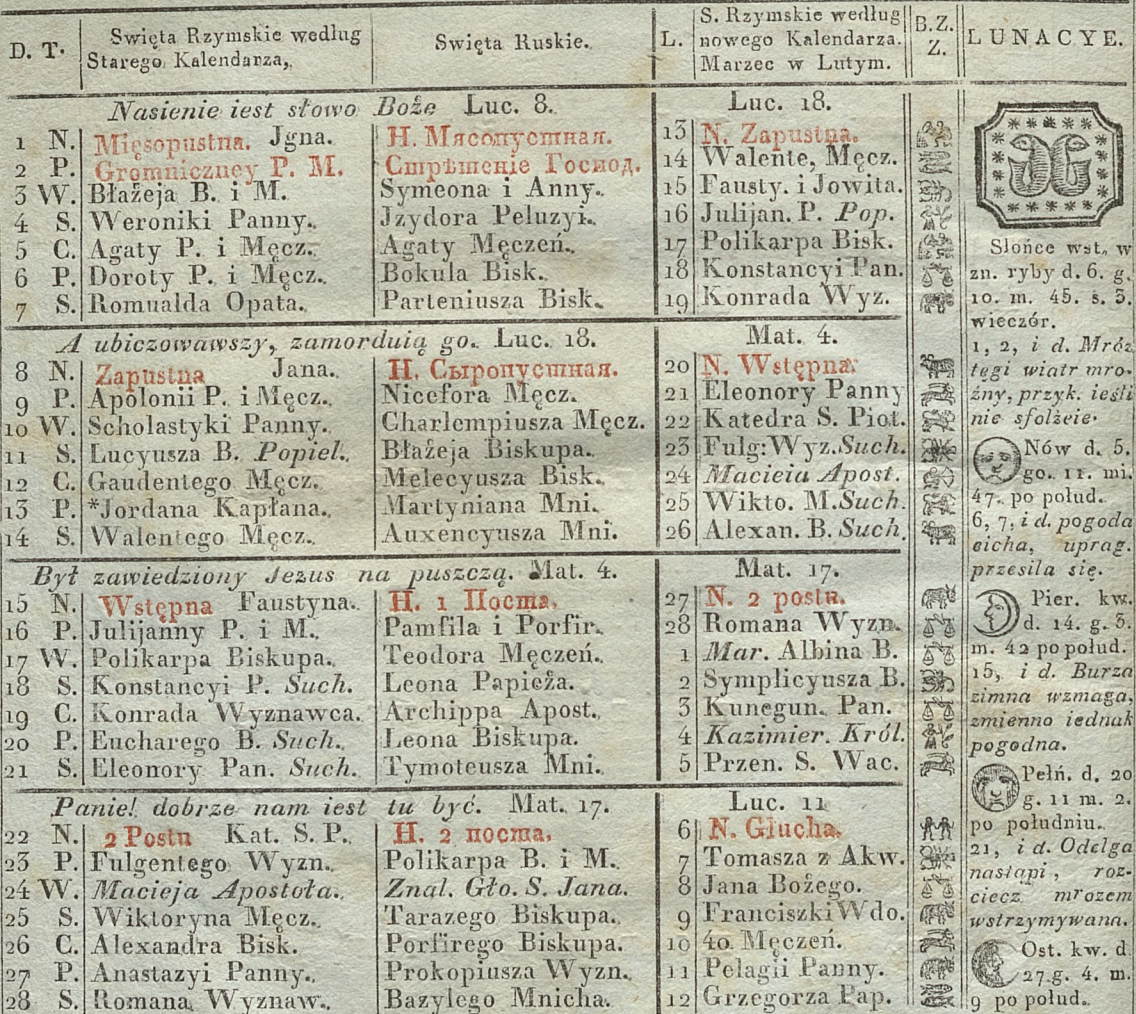 D. T. Swięta Rzymskie według Starego Kalendarza, Swięta Ruskie. L. S. Rzymskie według nowego Kalendarza. Marzec w Lutym. B.Z. Z. LUNACYE.
Nasienie iest słowo Boże Luc. 8. Luc. 18.
1 N. Mięsopustna. Jgna. Н. Мясопустная. 13 N. Zapustna.
2 P. Gromniczney P. M. Стрѣтенїе Господ. 14 Walente, Męcz.
3 W. Błażeja B. i M. Symeona i Anny. 15 Fausty. i Jowita.
4 S. Weroniki Panny. Jzydora Peluzyi. 16 Julijan. P. Pop.
5 C. Agaty P. i Męcz. Agaty Męczeń. 17 Polikarpa Bisk.
6 P. Doroty P. i Męcz. Bokula Bisk. 18 Konstancyi Pan.
7 S. Romualda Opata. Parteniusza Bisk. 19 Konrada Wyz.
A ubiczowawszy, zamorduią go. Luc. 18. Mat. 4.
8 N. Zapustna Jana. Н. Сыропустная. 20 N. Wstępna.
9 P. Apolonii P. i Męcz. Nicefora Męcz. 21 Eleonory Panny
10 W. Scholastyki Panny. Charlempiusza Męcz. 22 Katedra S. Piot.
11 S. Lucyusza B. Popiel. Błażeja Biskupa. 23 Fulg: Wyz. Such.
12 C. Gaudentego Męcz. Melecyusza Bisk. 24 Macieia Apost.
13 P. *Jordana Kapłana. Martyniana Mni. 25 Wikto. M. Such
14 S. Walentego Męcz. Auxencyusza Mni. 26 Alexan. B. Such.
Był zawiedziony Jezus na puszczą. Mat. 4. Mat. 17.
15 N. Wstępna Faustyna. Н. 1 Поста. 27 N. 2 postu.
16 P. Julijanny P. i M. Pamfila i Porfir. 28 Romana Wyzn.
17 W. Polikarpa Biskupa. Teodora Męczeń. 1 Mar. Albina B.
18 S. Konstancyi P. Such. Leona Papieża. 2 Symplicyusza B.
19 C. Konrada Wyznawca. Archippa Apost. 3 Kunegun. Pan.
20 P. Eucharego B. Such. Leona Biskupa. 4 Kazimier. Król.
21 S. Eleonory Pan. Such. Tymoteusza Mni. 5 Przen. S. Wac.
Panie! dobrze nam iest tu być. Mat. 17. Luc. 11
22 N. 2 Postu Kat. S. P. Н. 2 поста. 6 N. Głucha.
23 P. Fulgentego Wyzn. Polikarpa B. i M. 7 Tomasza z Akw.
24 W. Macieja Apostoła. Znal. Gło. S. Jana. 8 Jana Bożego.
25 S. Wiktoryna Męcz. Tarazego Biskupa. 9 Franciszki Wdo.
26 C. Alexandra Bisk. Porfirego Biskupa. 10 40 Męczeń.
27 P. Anastazyi Panny. Prokopiusza Wyzn. 11 Pelagii Panny.
28 S. Romana Wyznaw. Bazylego Mnicha. 12 Grzegorza Pap.
Słońce wst. w
zn. ryby d. 6. g.
10. m. 45. s. 3.
wieczór.
1, 2, i d. Mróz
tęgi wiatr mro-
źny, przyk. ieśli
nie sfolżeie.
Nów d. 5.
go. 11. mi.
47. po połud.
6, 7, i d. pogoda
cicha, uprag.
przesila się.
Pier. kw.
d. 14. g. 3.
m. 42 po połud.
15, i d. Burza
zimna wzmaga,
zmienno iednak
pogodna.
Pełń. d. 20
g. 11 m. 2.
po południu.
21, i d. Odelga
nastąpi, roz-
ciecz mrozem
wstrzymywana.
Ost. kw. d
27. g. 4. m.
9 po połud.